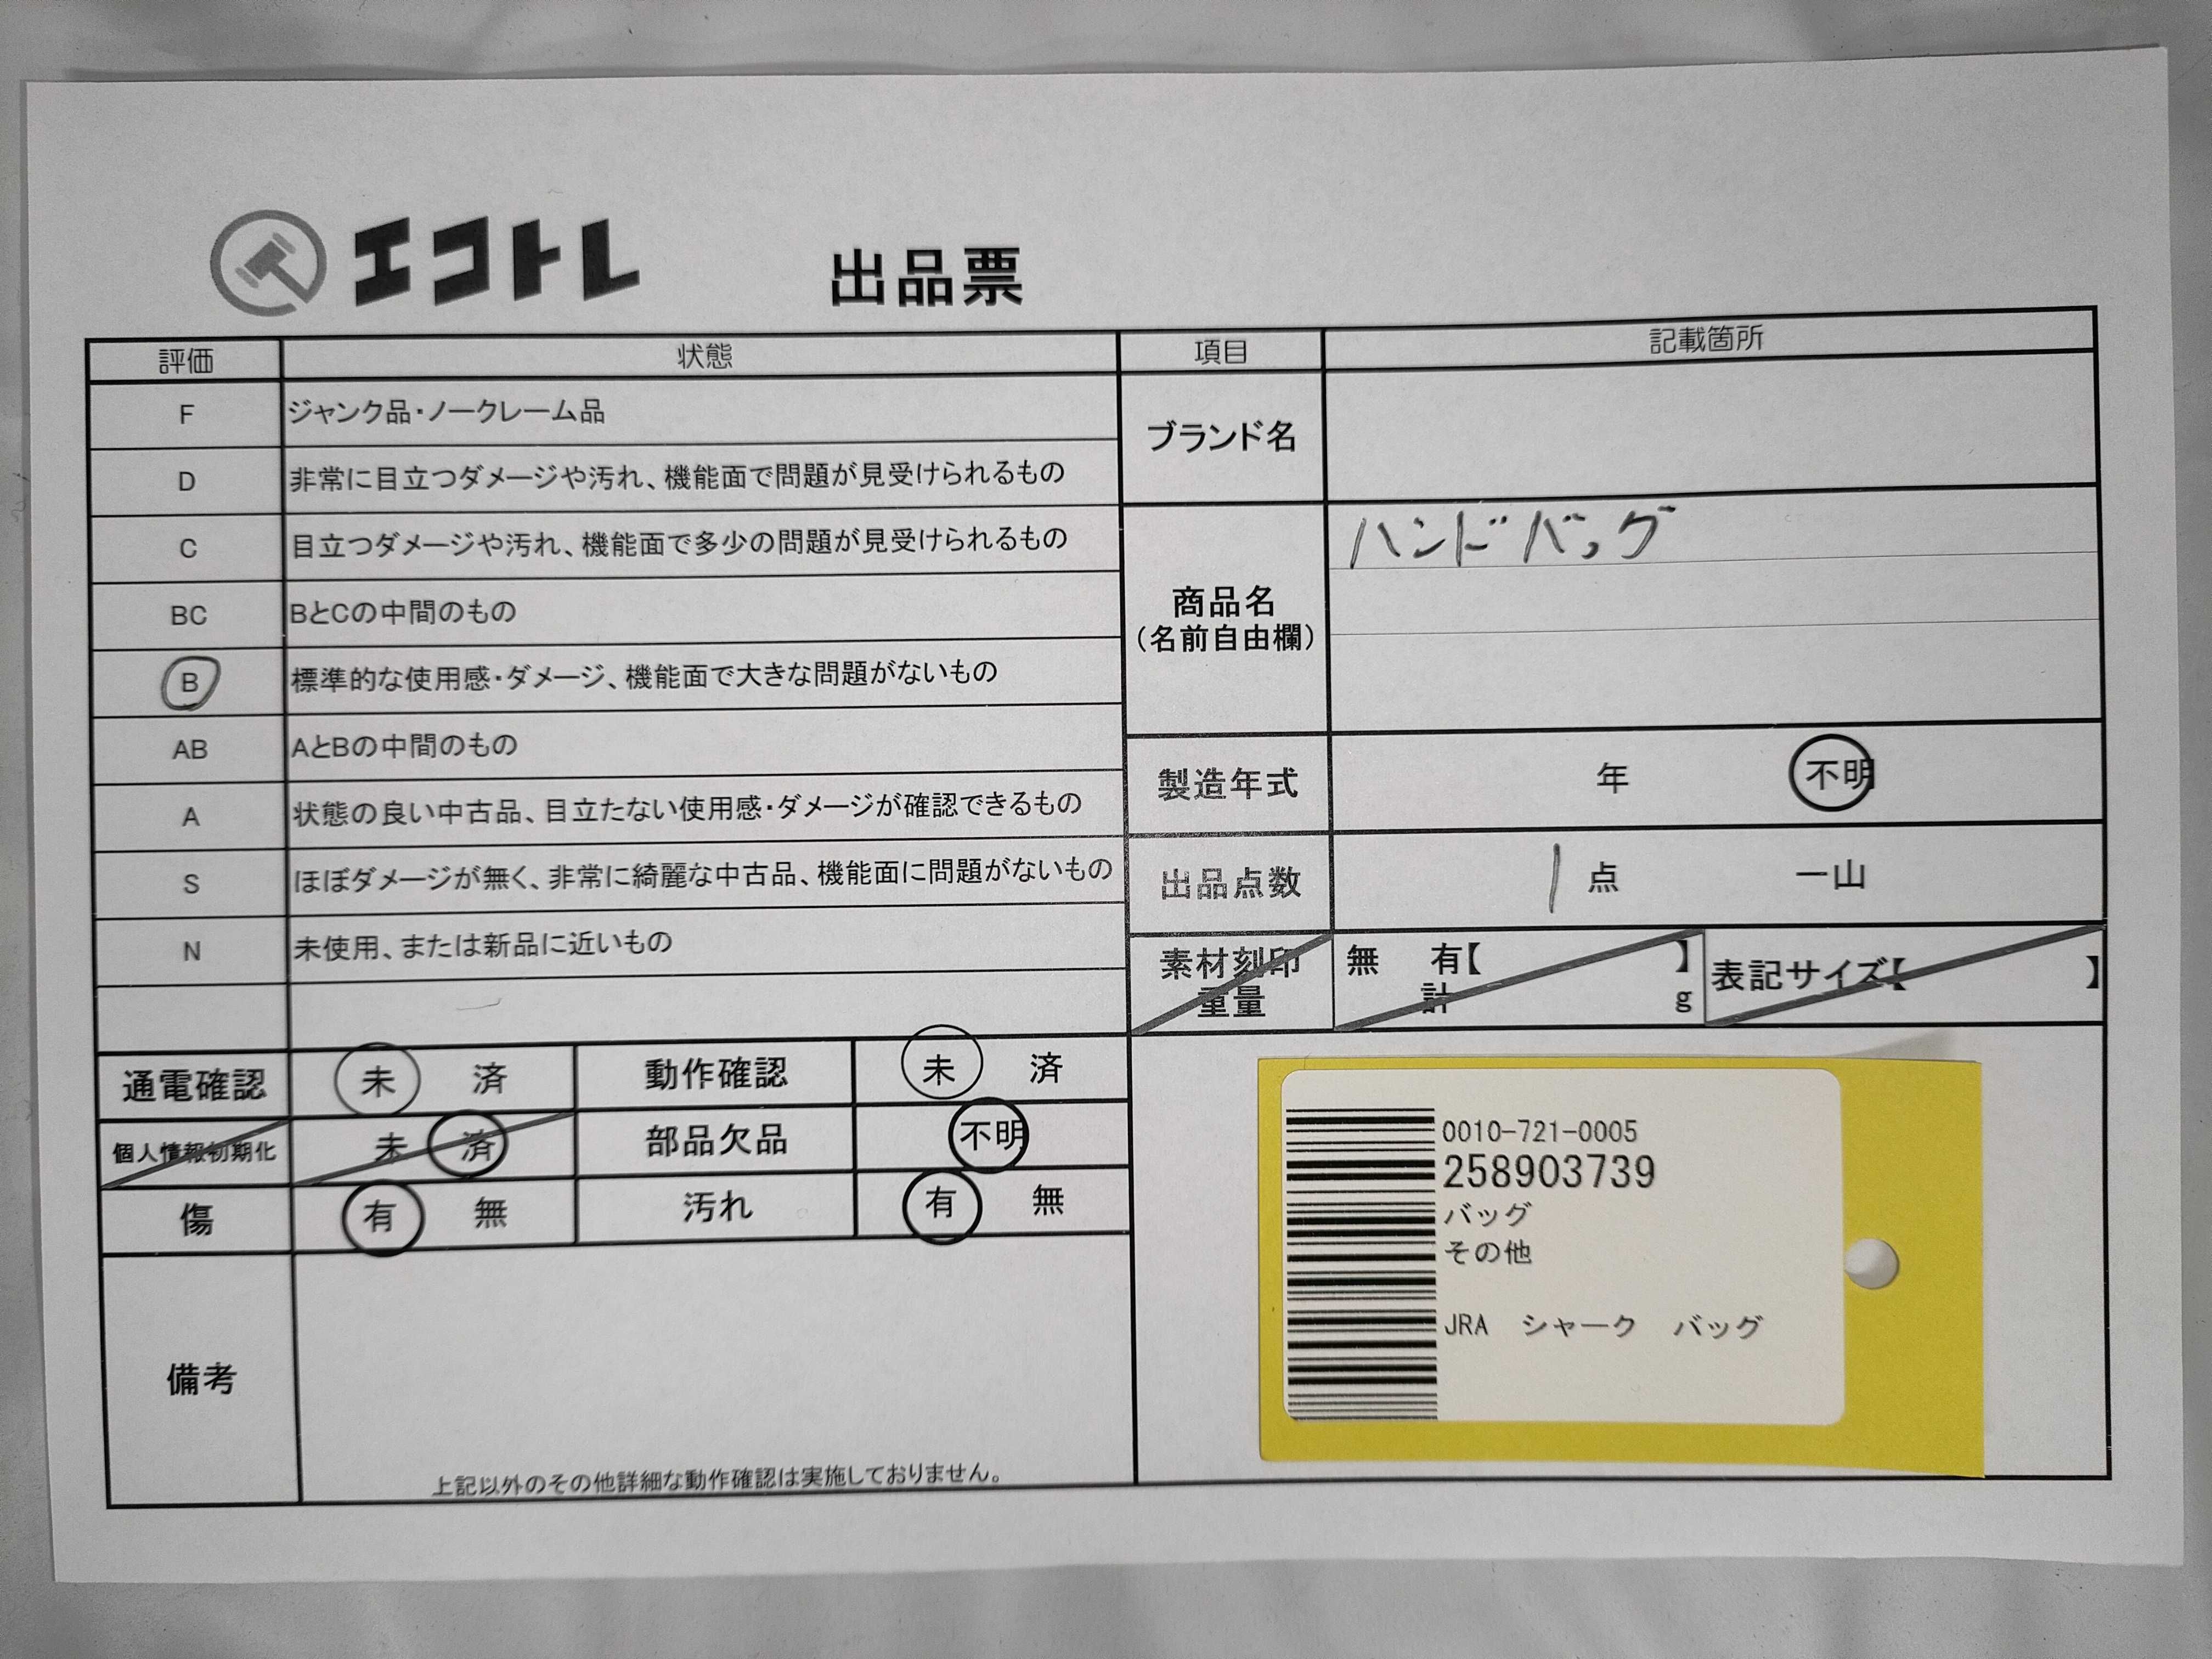 エコトレ 出品票
評価 状態 項目 記載箇所
F ジャンク品・ノークレーム品
D 非常に目立つダメージや汚れ、機能面で問題が見受けられるもの
C 目立つダメージや汚れ、機能面で多少の問題が見受けられるもの
BC BとCの中間のもの
B 標準的な使用感・ダメージ、機能面で大きな問題がないもの
AB AとBの中間のもの
A 状態の良い中古品、目立たない使用感・ダメージが確認できるもの
S ほぼダメージが無く、非常に綺麗な中古品、機能面に問題がないもの
N 未使用、または新品に近いもの
ブランド名
商品名 ハンドバッグ
(名前自由欄)
製造年式 年 不明
出品点数 1 点 一山
素材刻印 無 有【 】 表記サイズ【 】
重量 計 g
通電確認 未 済 動作確認 未 済
個人情報初期化 未 済 部品欠品 不明
傷 有 無 汚れ 有 無
備考
上記以外のその他詳細な動作確認は実施しておりません。
0010-721-0005
258903739
バッグ
その他
JRA シャーク バッグ